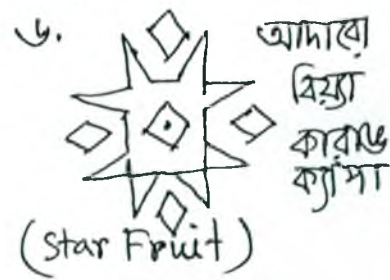 ৬.
আদারো
বিয়্যা
কারাঙ
ক্যাপা
(Star Fruit)